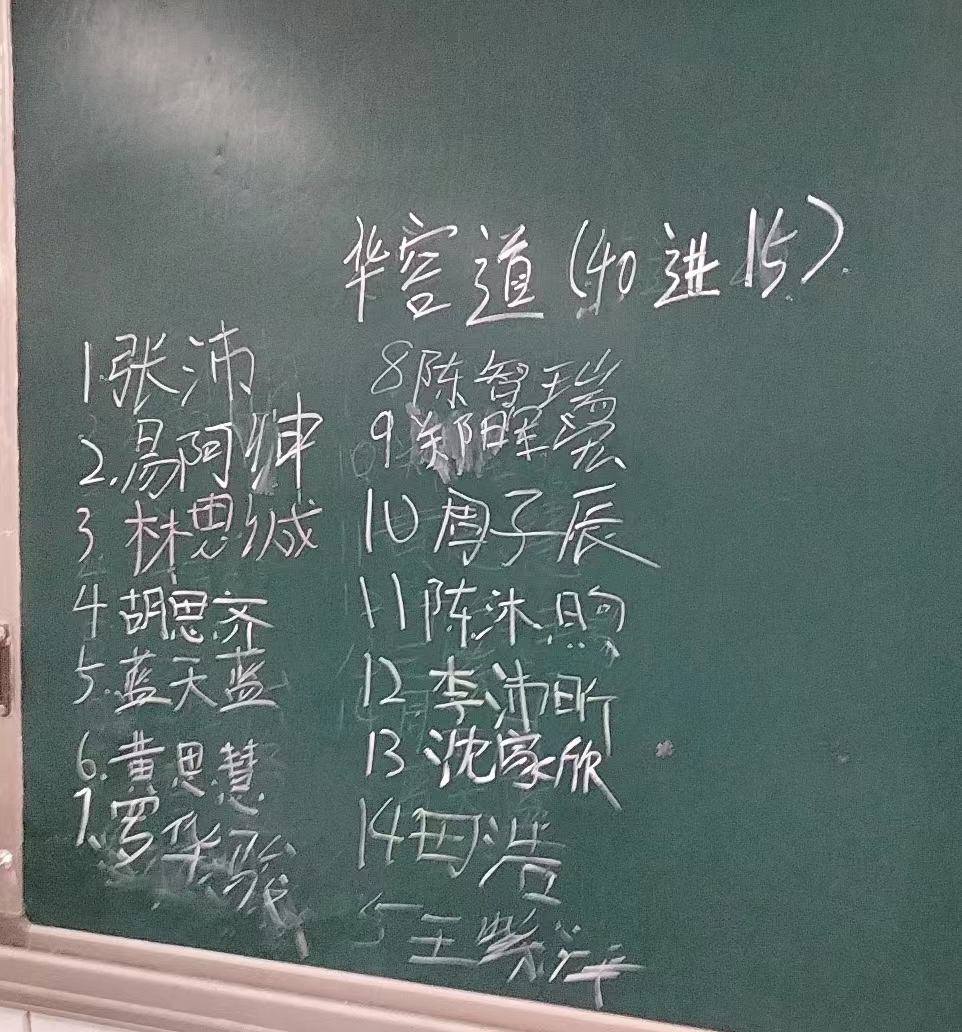 华容道(40进15)
1.张沛
2.易阿绅
3.林思诚
4.胡思齐
5.蓝天蓝
6.黄思慧
7.罗华骏
8陈智瑞
9郑阳
10周子辰
11陈沐煦
12李沛昕
13沈家欣
14田浩
15王紫萍